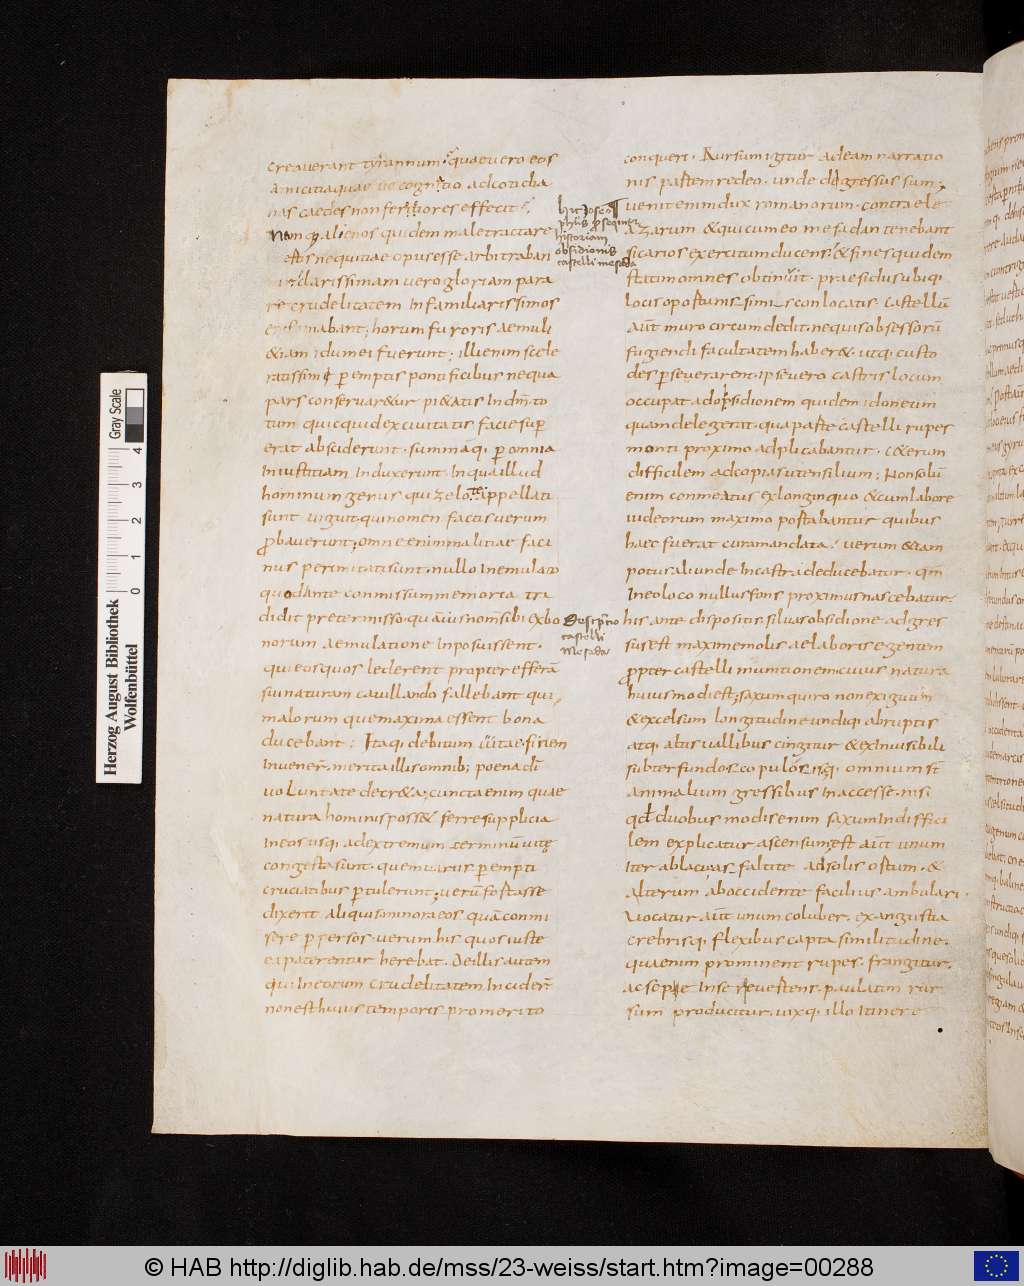 creaverant tyrannum. quae vero eos
amicitia quae vel cognatio ad cotidia
nas caedes non fertiliores effecit;
Nam alienos quidem male tractare
eos nequitiae opus esse arbitraban
clarissimam vero gloriam para
re crudelitatem in familiarissimos
existimabant; horum furoris aemuli
&iam idumei fuerunt; illi enim scele
ratissimi peremptis pontificibus nequa
pars conservar&ur pi&atis in dm to
tum quicquid ex civitatis facie sup
erat absciderunt. summāq; p omnia
iniustitiam induxerunt. in qua illud
hominum genus qui zelotae appellati
sunt viguit. qui nomen factis verum
probaverunt; omne enim malitiae faci
nus perimitati sunt. nullo in emulato
quod ante commissum memoria tra
didit pretermisso. quāvis nom sibi ex bo
norum aemulatione inposuissent.
qui eos quos lederent propter efferā
sui naturam cavillando fallebant qui
malorum que maxima essent bona
ducebant; Itaq; debitum vitae finem
invener. merita illis omnib; poena di
voluntate decr&a; cuncta enim quae
natura hominis poss& ferre supplicia
in eos usq; ad extremum terminū vite
congesta sunt. quem varus perempti
cruciatibus ptulerunt; verū fortasse
dixerit aliquis minora eos quā commi
sere perpessos. verum his quos iuste
ea paterentur herebat. De illis autem
qui in eorum crudelitatem incider
non est huius temporis pro merito
conqueri. Rursum igitur ad eam narratio
nis partem redeo. unde degressus sum;
venit enim dux romanorum. contra ele
azarum & qui cum eo mefadan tenebant
sicarios exercitum ducens; & fines quidem
statim omnes obtinuit. praesidiis ubiq;
locis oportunis simi conlocatis. castellū
aūt muro circumdedit. nequis obsessorū
fugiendi facultatem haber&. utq; custo
des perseverarent. ipse vero castris locum
occupat ad obsidionem quidem idoneum
quam delegerat. qua parte castelli rupes
monti proximo adplicabantur. c&erum
difficilem ad copias utensilium; Non solū
enim conmeatus ex longinquo & cum labore
iudeorum maximo portabantur quibus
haec fuerat cura mandata; verum &iam
potus aliunde in castra deducebatur. qm
in eo loco nullus fons proximus nascebatur.
his ante dispositis silva obsidione adgres
sus est maximem olis ae laboris egentem
propter castelli munitionem cuius natura
huius modi est; saxum quiro non exiguum
& excelsum longitudine undiq; abruptis
atq; altis vallibus cingitur & ex invisibili
subter fundo scopulosisq; omnium st
animalium gressibus inaccesse. nisi
qd duobus modis enim saxum in diffici
lem explicatur ascensum; est aūt unum
iter ab lacu as faltite ad solis ortum. &
alterum ab occidente facilius ambulari.
Vocatur aūt unum coluber. ex angustia
crebrisq; flexibus capta similitudine.
quaenim prominent rupes. frangitur.
ac sepe in se revertens. paulatim rur
sum producitur. vixq; illo itinere
hic Iose
phus prosequitur
historiam
obsidionis
castelli mesada
Descriptio
castelli
Mesada
Herzog August Bibliothek
Wolfenbüttel
Gray Scale
0 1 2 3 4
© HAB http://diglib.hab.de/mss/23-weiss/start.htm?image=00288